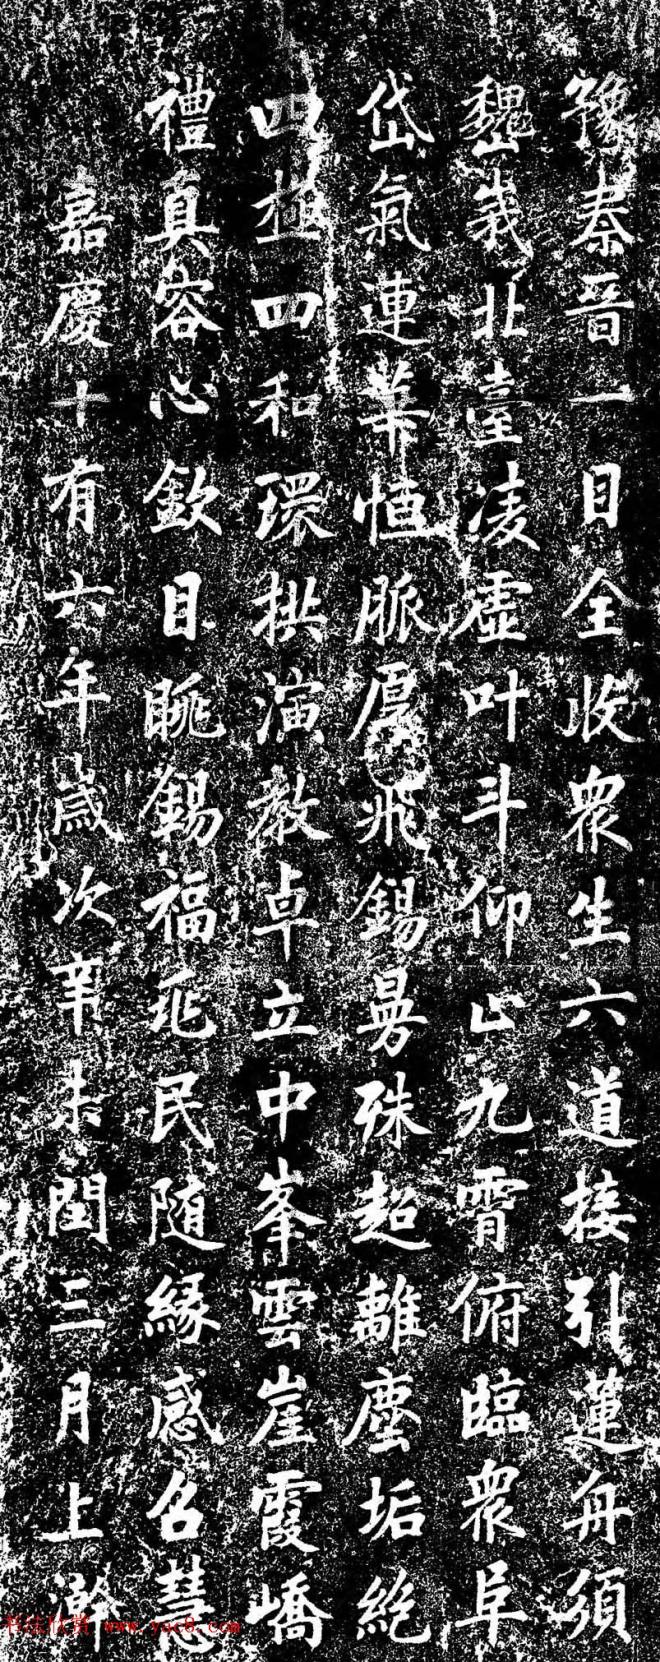 豫秦晉一目全收衆生六道接引蓮舟須
巍峩北臺凌虛叶斗仰止九霄俯臨衆阜
岱氣連華恒脈厚飛錫曇殊超離塵垢絕
四極四和環拱演教卓立中峯雲崖霞嶠
禮真容心欽目眺錫福烝民隨緣感召慧
嘉慶十有六年歲次辛未閏三月上澣
书法欣赏 www.yac8.com